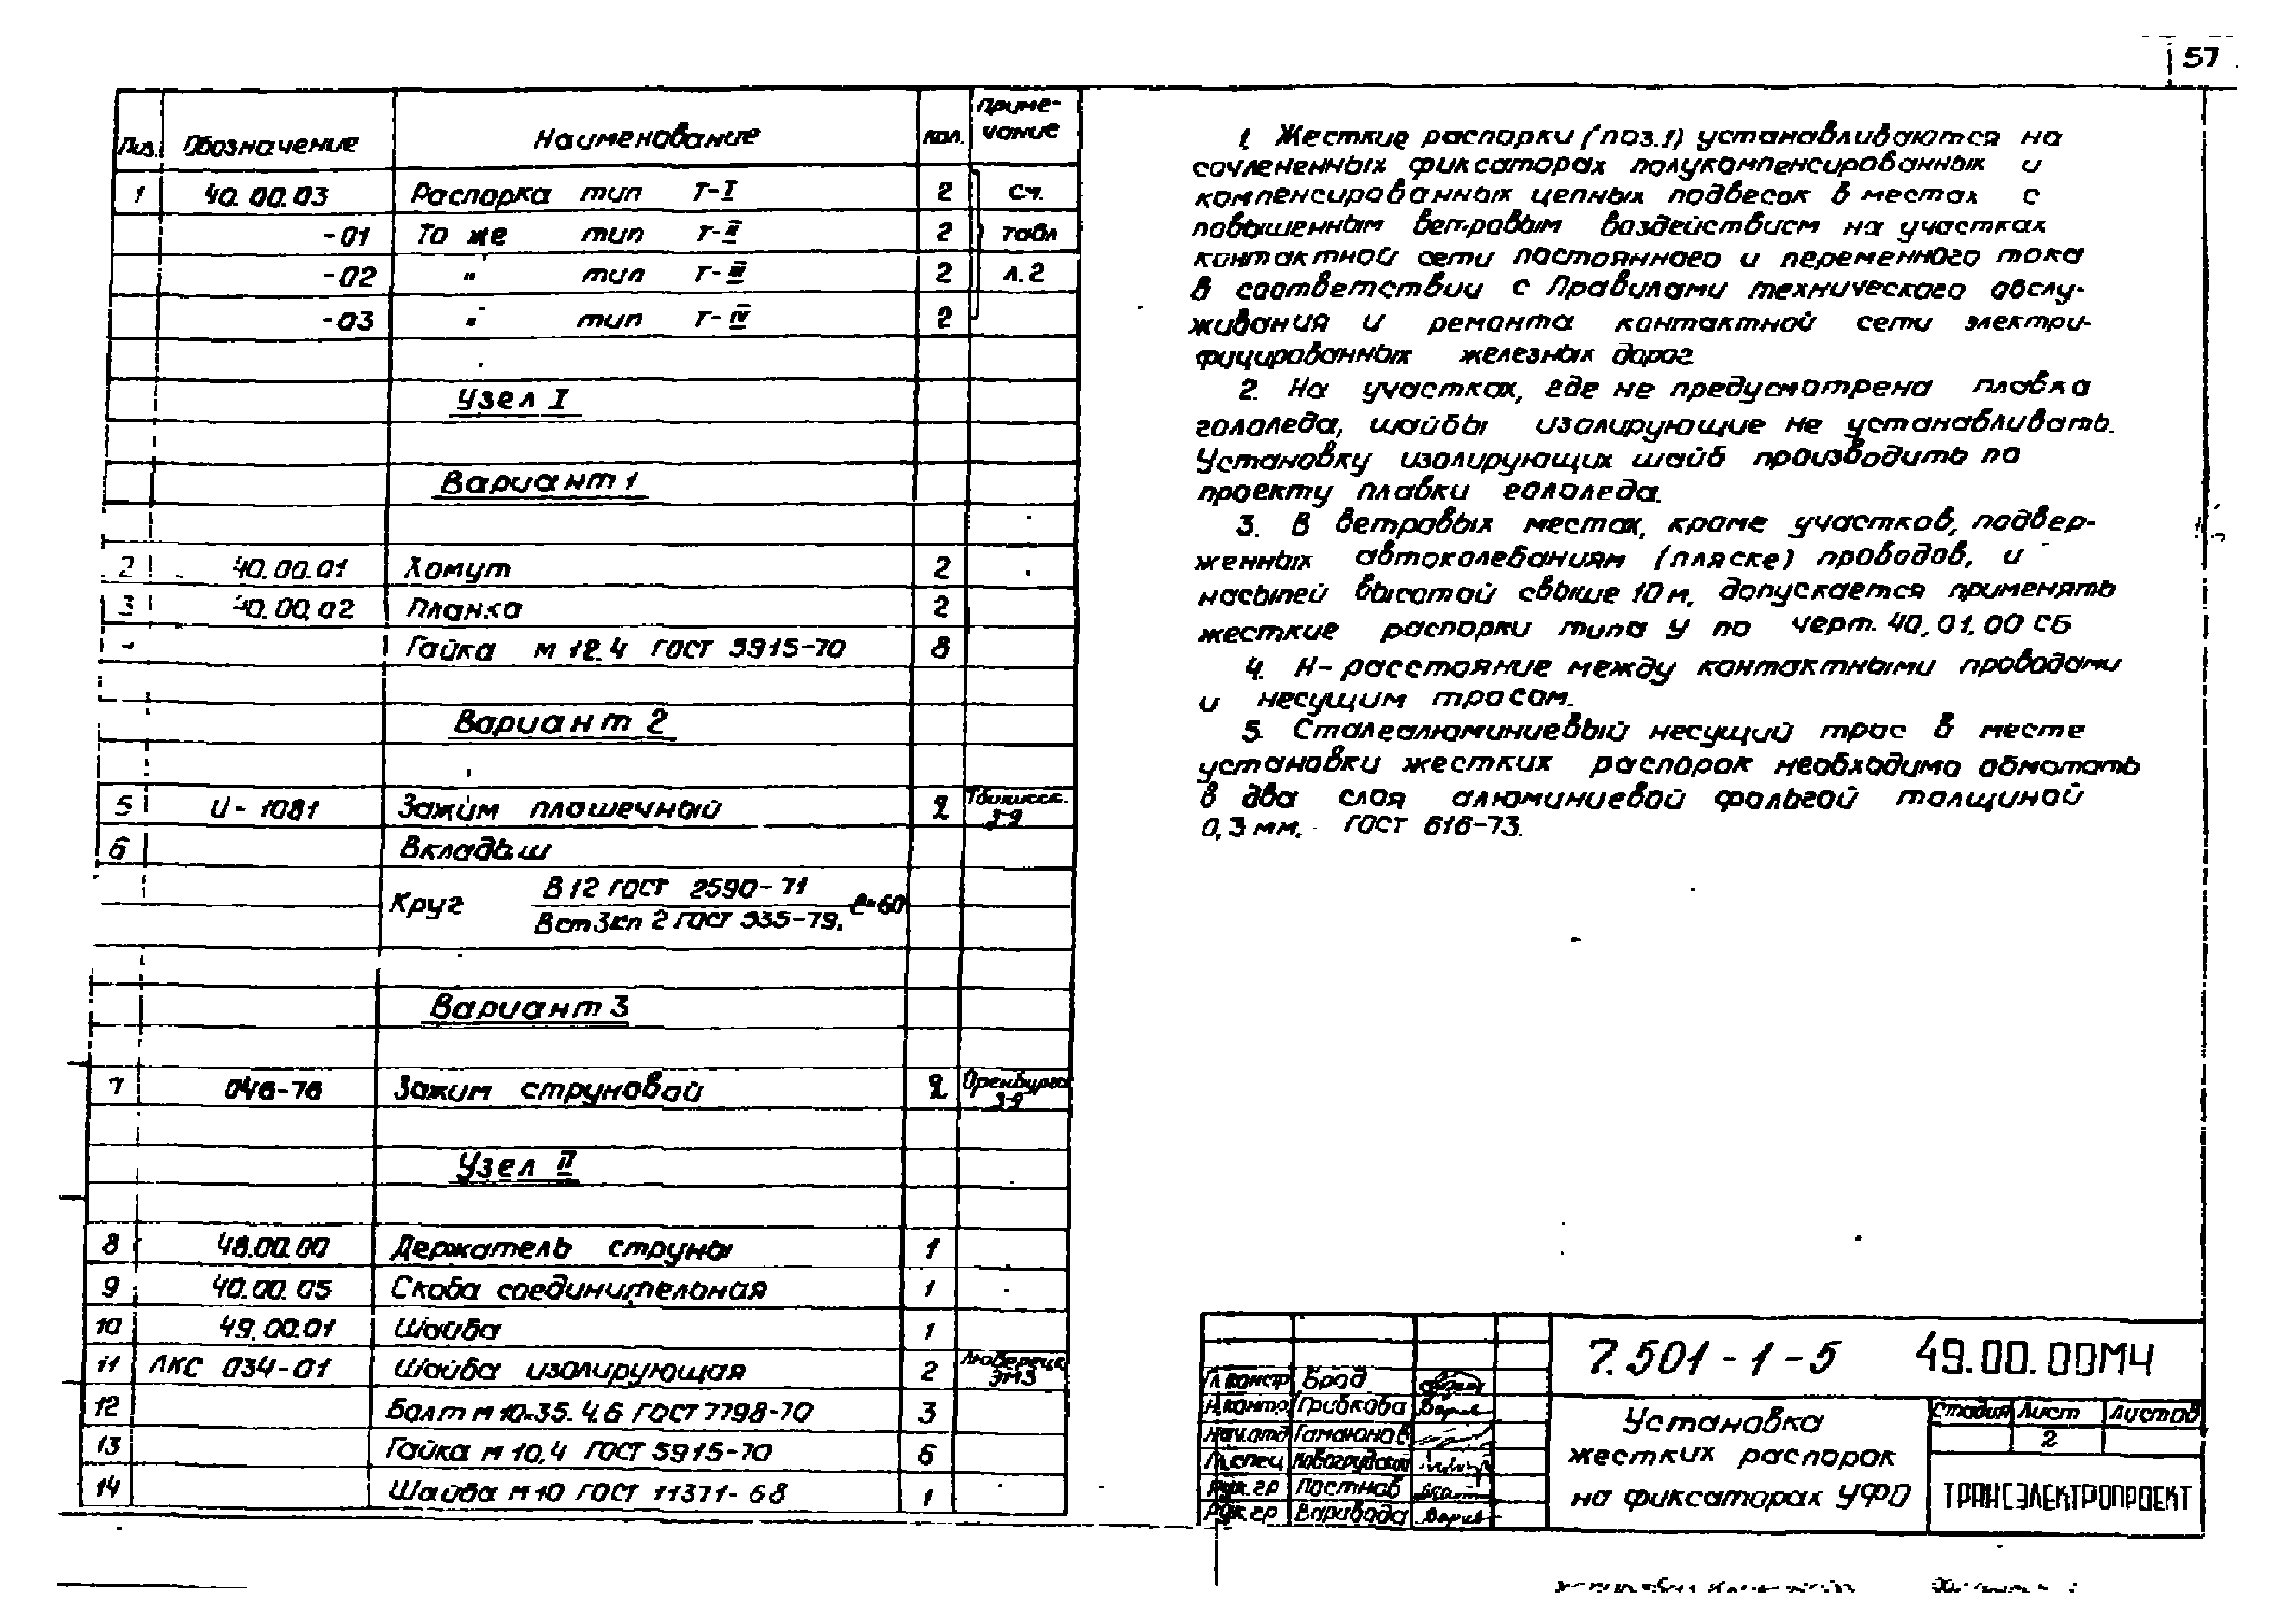 57
Поз. Обозначение Наименование Кол. Приме-
чание
1 40.00.03 Распорка тип Т-I 2 см.
-01 То же тип Т-II 2 табл
-02 " тип Т-III 2 л.2
-03 " тип Т-IV 2
Узел I
Вариант 1
2 40.00.01 Хомут 2
3 40.00.02 Планка 2
Гайка М 12.4 ГОСТ 5915-70 8
Вариант 2
5 И-1081 Зажим плашечный 2 Тбилисск.
з-д
6 Вкладыш
Круг В12 ГОСТ 2590-71
Вст3кп 2 ГОСТ 535-79. ℓ=60
Вариант 3
7 046-76 Зажим струновой 2 Оренбургс
з-д
Узел II
8 48.00.00 Держатель струны 1
9 40.00.05 Скоба соединительная 1
10 49.00.01 Шайба 1
11 ЛКС 034-01 Шайба изолирующая 2 Люберецк
ЭМЗ
12 Болт М10×35.4.6 ГОСТ 7798-70 3
13 Гайка М 10.4 ГОСТ 5915-70 6
14 Шайба М10 ГОСТ 11371-68 1
1. Жесткие распорки (поз.1) устанавливаются на
сочлененных фиксаторах полукомпенсированных и
компенсированных цепных подвесок в местах с
повышенным ветровым воздействием на участках
контактной сети постоянного и переменного тока
в соответствии с Правилами технического обслу-
живания и ремонта контактной сети электри-
фицированных железных дорог
2. На участках, где не предусмотрена плавка
гололеда, шайбы изолирующие не устанавливать.
Установку изолирующих шайб производить по
проекту плавки гололеда.
3. В ветровых местах, кроме участков, подвер-
женных автоколебаниям (пляске) проводов, и
насыпей высотой свыше 10м, допускается применять
жесткие распорки типа У по черт. 40.01.00 СБ
4. Н-расстояние между контактными проводами
и несущим тросом.
5. Сталеалюминиевый несущий трос в месте
установки жестких распорок необходимо обмотать
в два слоя алюминиевой фольгой толщиной
0,3 мм. ГОСТ 618-73.
7.501-1-5 49.00.00МЧ
Гл констр Брод
Н.контр Грибкова
Нач.отд Гамаюнов
Гл.спец Новогрудский
Рук.гр. Постнов
Рук.гр Варивода
Установка
жестких распорок
на фиксаторах УФО
Стадия Лист Листов
2
ТРАНСЭЛЕКТРОПРОЕКТ